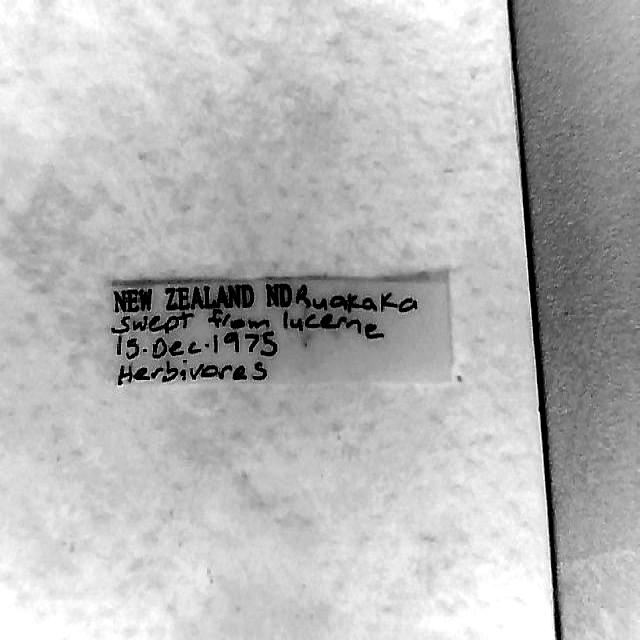 NEW ZEALAND ND Ruakaka
Swept from lucerne
15.Dec.1975
Herbivores